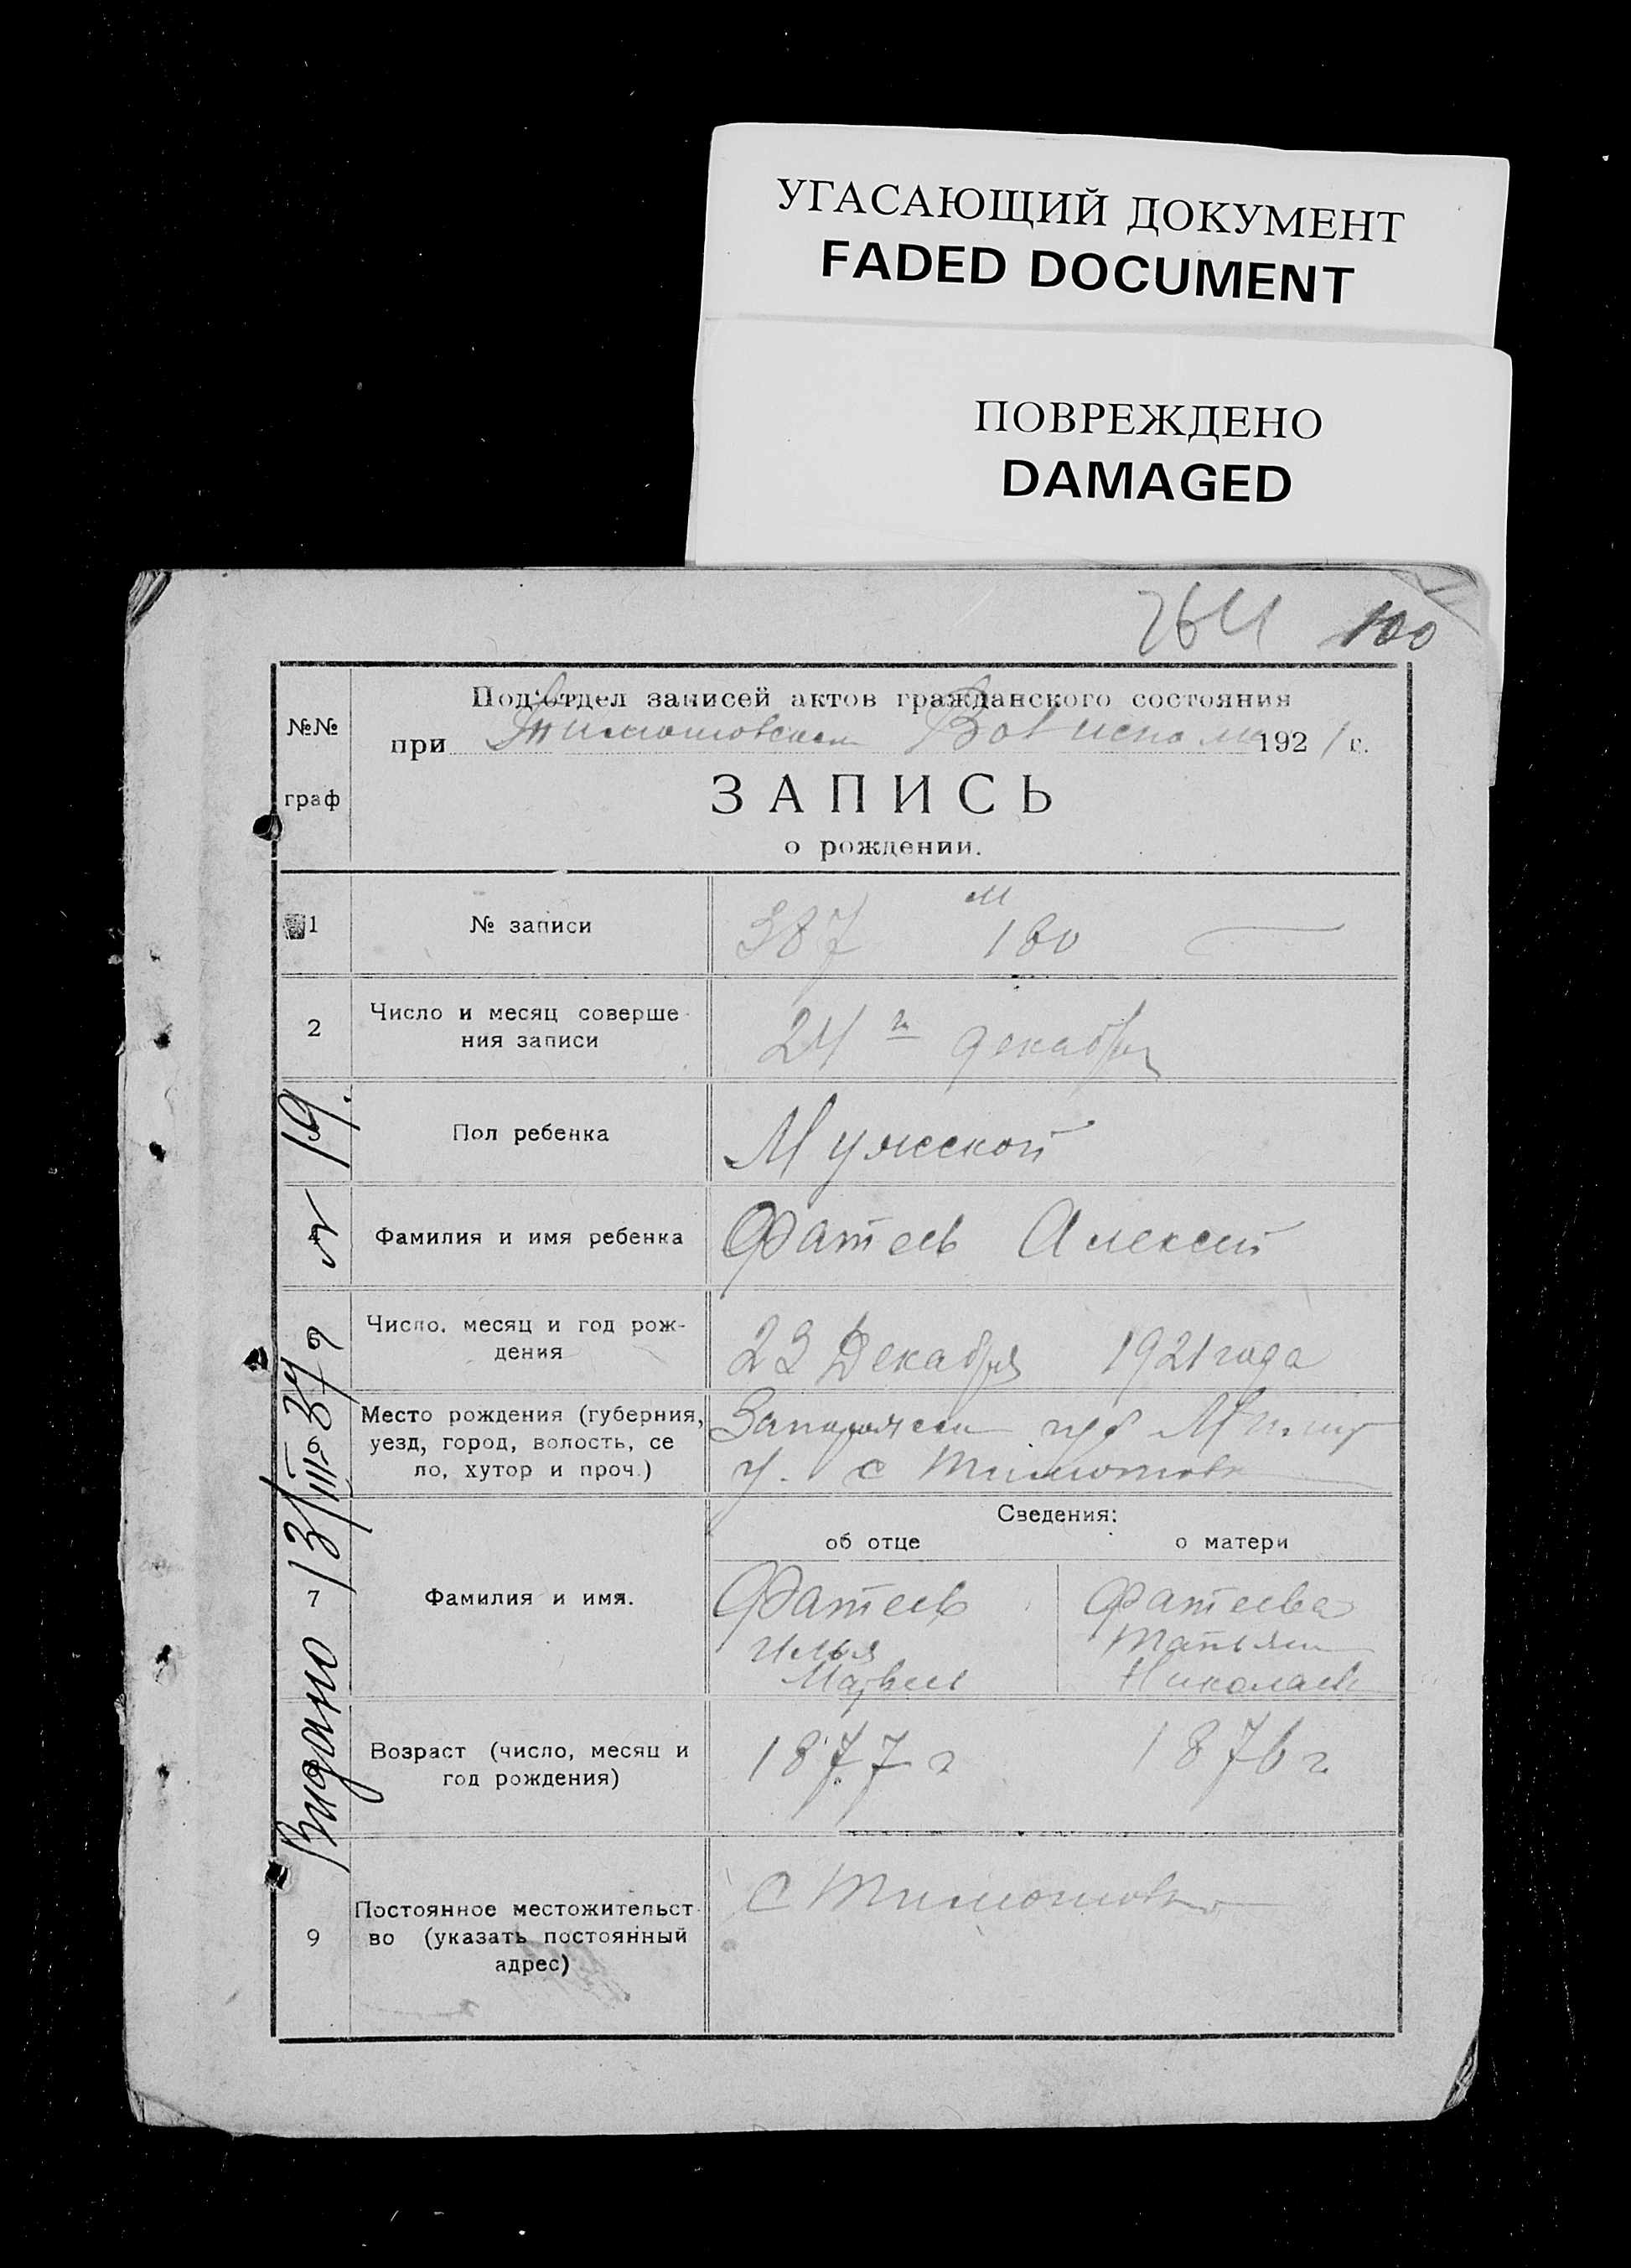 УГАСАЮЩИЙ ДОКУМЕНТ
FADED DOCUMENT
ПОВРЕЖДЕНО
DAMAGED
264 100
№№ граф
Под'отдел записей актов гражданского состояния
при Тимошовском Волисполк 1921 г.
ЗАПИСЬ
о рождении.
1 № записи 387 М 180
2 Число и месяц соверше-
ния записи 24 го декабря
Пол ребенка Мужской
4 Фамилия и имя ребенка Фатеев Алексей
5 Число, месяц и год рож-
дения 23 Декабря 1921 года
6 Место рождения (губерния,
уезд, город, волость, се
ло, хутор и проч.)
Запорожск губ
у. с Тимошовк
Сведения:
об отце о матери
7 Фамилия и имя.
Фатеев Фатеева
Илья Татьян
Матвеев Николаев
Возраст (число, месяц и
год рождения) 1877 г 1876 г.
9 Постоянное местожительст-
во (указать постоянный
адрес)
С Тимошовк
Видано 13/III-37 р № 19.